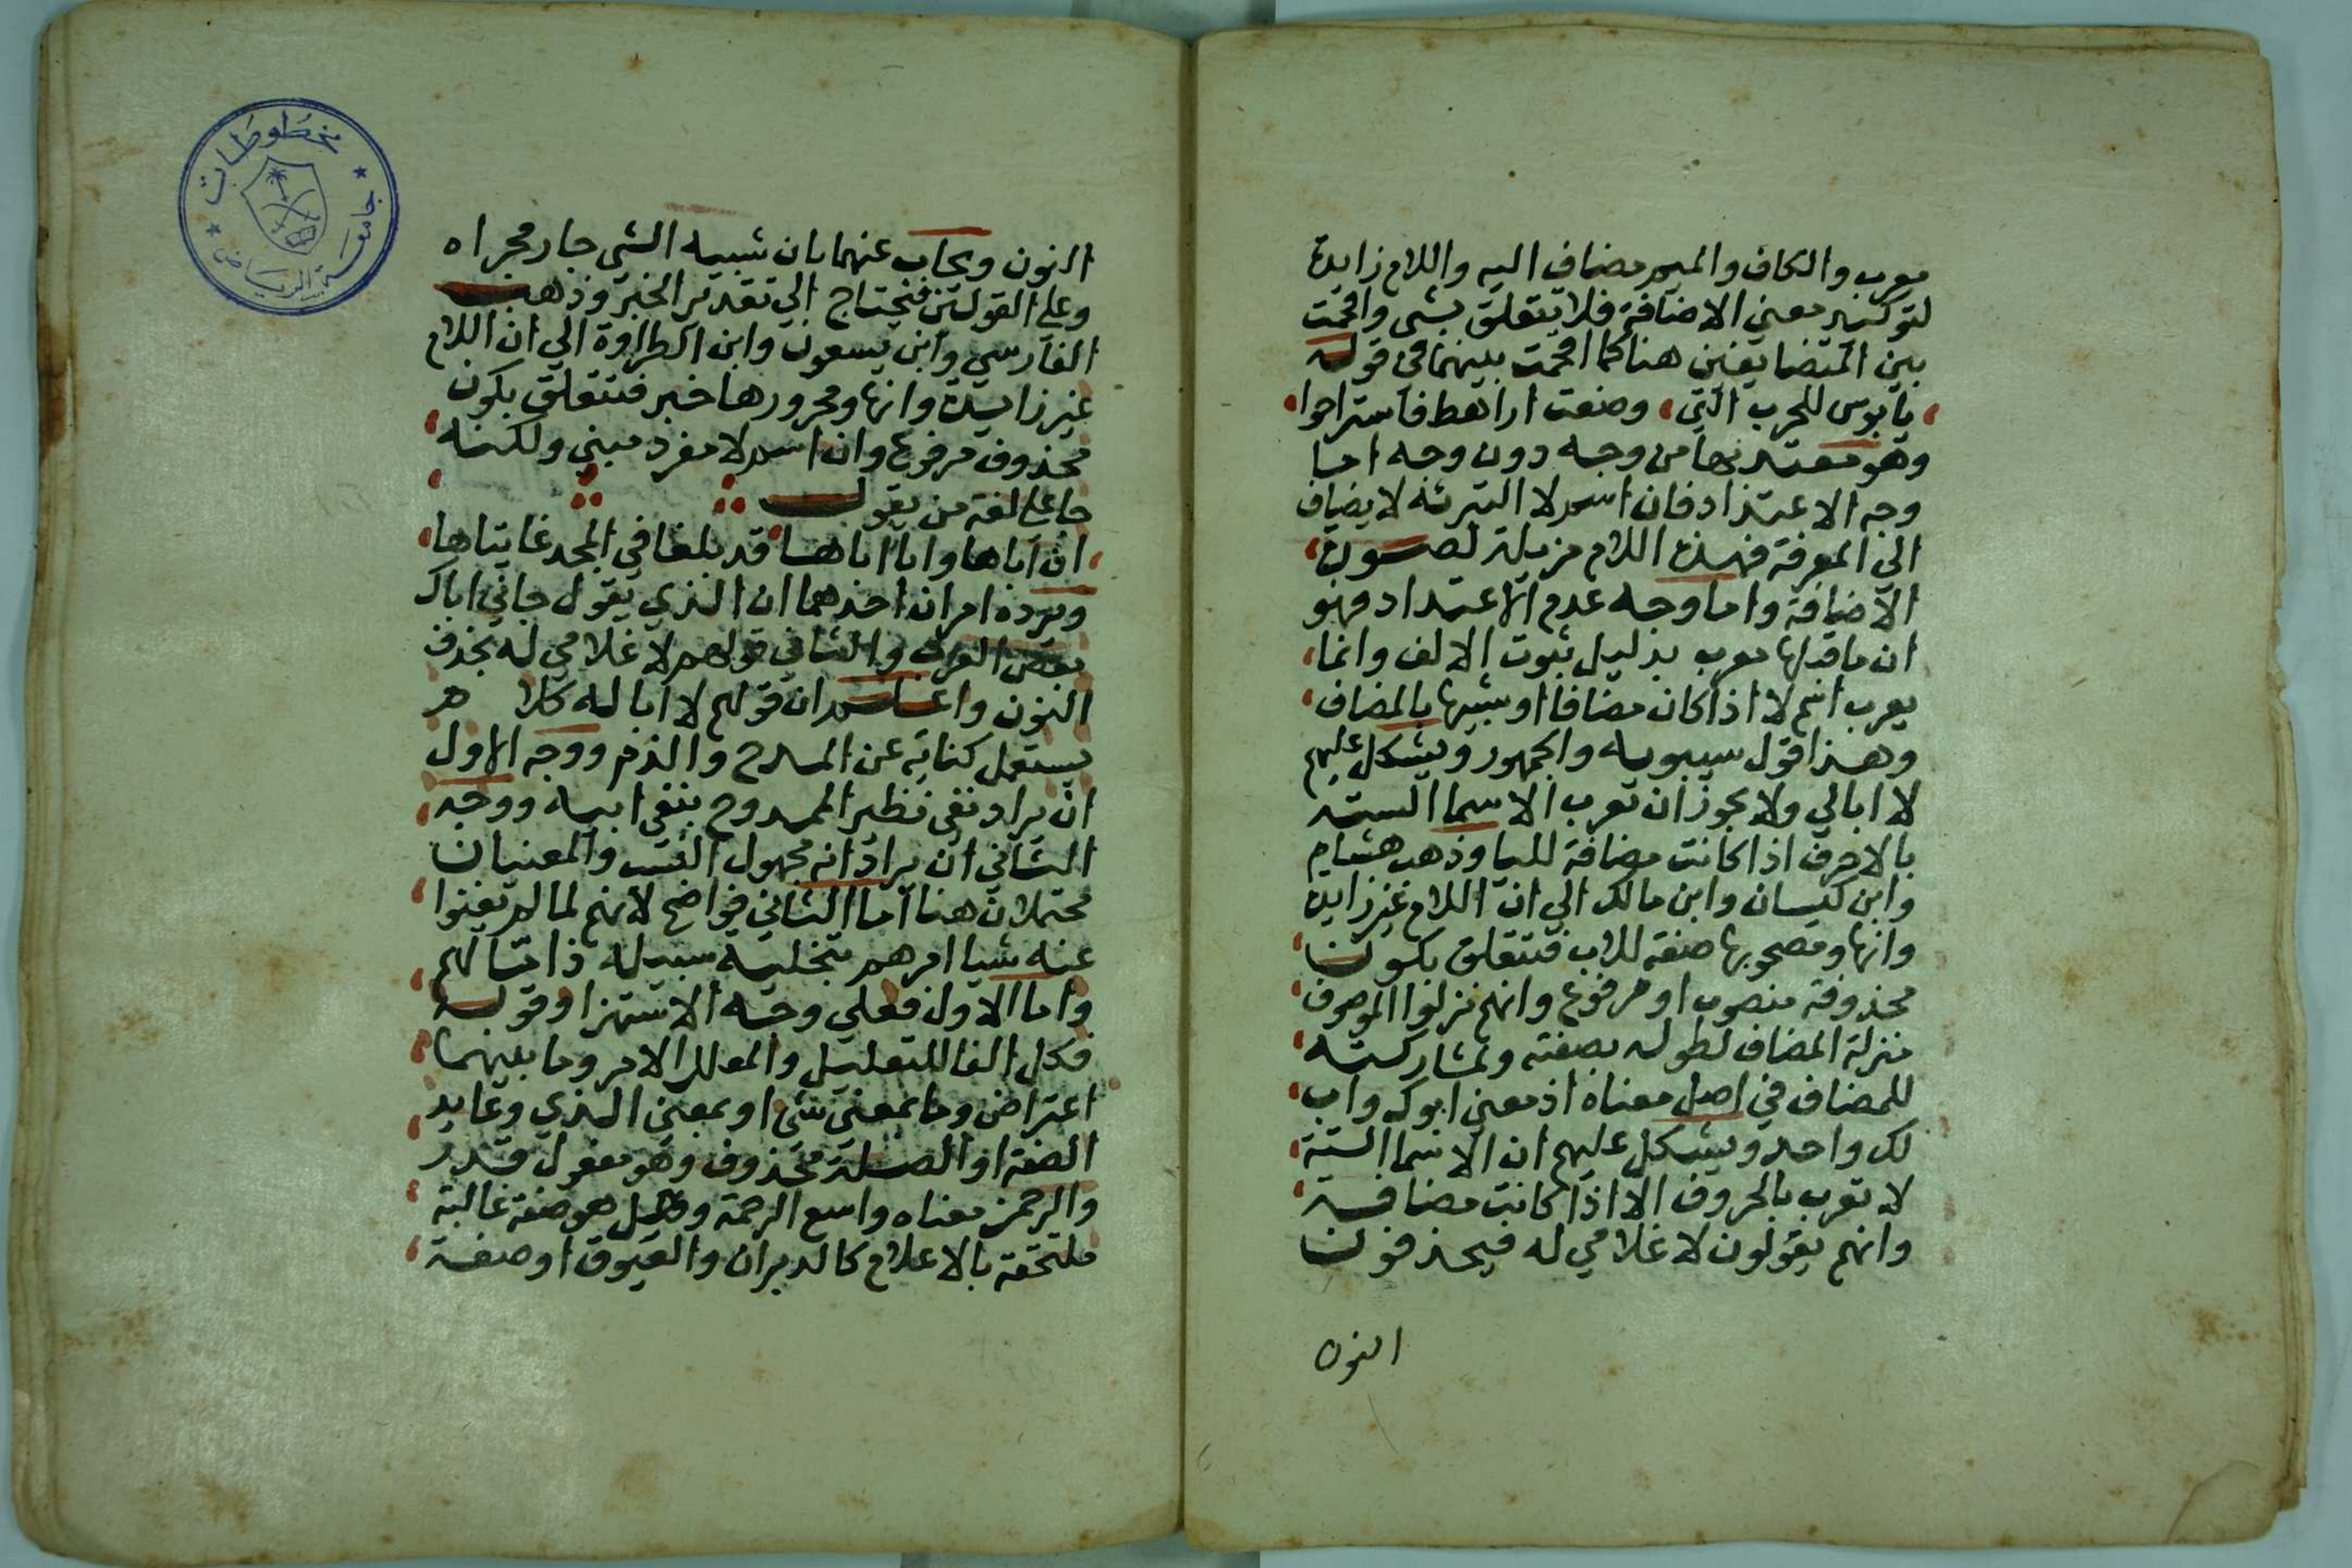 معرب والكاف والميم مضاف اليه واللام زايدة
لتوكيد معني الاضافة فلا يتعلق بشي واقحمت
بين المتضايفين هنا كما اقحمت بينهما في قوله
يا بوس للحرب التي وضعت اراهط فاستراحوا
وهو معتد بها من وجه دون وجه اما
وجه الاعتداد فان اسم لا التبرئة لا يضاف
الي المعرفة فهذه اللام مزيلة لصورة
الاضافة واما وجه عدم الاعتداد فهو
ان ما قبلها معرب بدليل ثبوت الالف وانما
يعرب اسم لا اذا كان مضافا او شبيها بالمضاف
وهذا قول سيبويه والجمهور ويشكل عليهم
لا ابا لي ولا يجوز ان تعرب الاسما الستة
بالاحرف اذا كانت مضافة لليا وذهب هشام
وابن كيسان وابن مالك الي ان اللام غير زايدة
وانها ومصحوبها صفة للاب فتتعلق بكون
محذوفة منصوب او مرفوع وانهم نزلوا الموصوف
منزلة المضاف لطوله بصفته ولمشاركته
للمضاف في اصل معناه اذ معني ابوك واب
لك واحد ويشكل عليهم ان الاسما الستة
لا تعرب بالحروف الا اذا كانت مضافة
وانهم يقولون لا غلامي له فيحذفون
النون
النون ويجاب عنهما بان شبيه الشي جار مجراه
وعلي القولين فيحتاج الي تقدير الخبر وذهب
الفارسي وابن يسعون وابن الطراوة الي ان اللام
غير زايدة وانها ومجرورها خبر فتتعلق بكون
محذوف مرفوع وان اسم لا مفرد مبني ولكنه
جا علي لغة من يقول
ان اباها وابا اباها قد بلغا في المجد غايتاها
ويرده امران احدهما ان الذي يقول جاني اباك
بعض العرب والثاني قولهم لا غلامي له بحذف
النون واعلم ان قولهم لا ابا له كلام
يستعمل كناية عن المدح والذم ووجه الاول
ان يراد نفي نظير الممدوح بنفي ابيه ووجه
الثاني ان يراد انه مجهول النسب والمعنيان
محتملان هنا اما الثاني فواضح لانهم لما لم يغنوا
عنه شيا امرهم بتخلية سبيله ذاما لهم
واما الاول فعلي وجه الاستهزا وقوله
فكل الفا للتعليل والمعلل الامر وما بينهما
اعتراض وما بمعني شي او بمعني الذي وعايد
الصفة او الصلة محذوف وهو مفعول قدر
والرحمن معناه واسع الرحمة وقيل هو صفة غالبة
ملتحقة بالاعلام كالدبران والعيوق او صفة
مخطوطات
جامعة الرياض